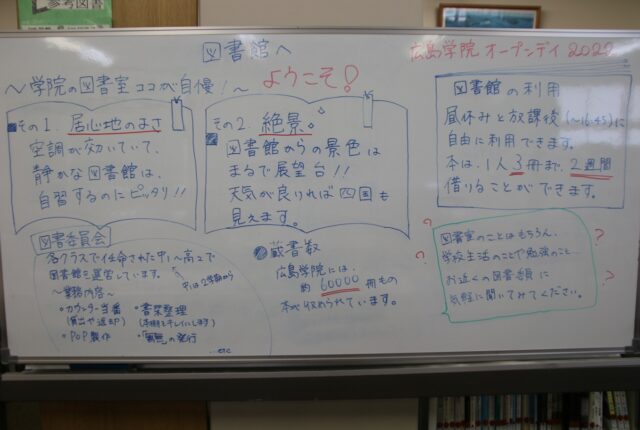 参考図書
図書館へ
ようこそ!
広島学院 オープンデイ 2022
〜学院の図書室 ココが自慢!〜
その1. 居心地のよさ
空調が効いていて、
静かな図書館は、
自習するのにピッタリ!!
その2. 絶景。
図書館からの景色は
まるで展望台!!
天気が良ければ四国も
見えます。
図書館の利用
昼休みと放課後(〜16:45)に
自由に利用できます。
本は、1人3冊まで、2週間
借りることができます。
図書委員会
各クラスで任命された中1〜高2で
図書館を運営しています。
中1は2学期から
〜業務内容〜
・カウンター当番
(貸出や返却)
・POP製作
・書架整理
(本棚をキレイにします)
の発行
...etc
蔵書数
広島学院には、
約60000冊もの
本が収められています。
図書室のことはもちろん、
学校生活のことや勉強のこと...
お近くの図書委員に
気軽に聞いてみてください。
? ? ? ?